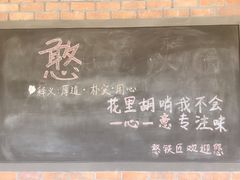 憨
释义:厚道·朴实·用心
花里胡哨我不会
一心一意专注味
憨铁匠欢迎您